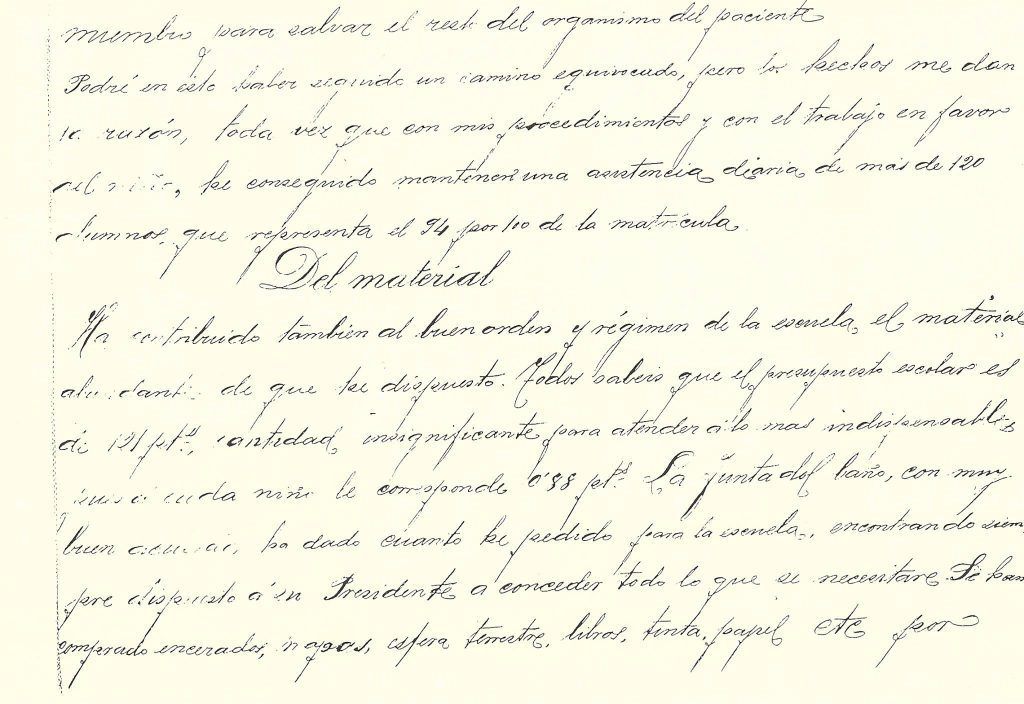 miembro para salvar el resto del organismo del paciente
Podré en esto haber seguido un camino equivocado, pero los hechos me dan
la razón, toda vez que con mis procedimientos y con el trabajo en favor
del niño, he conseguido mantener una asistencia diaria de más de 120
alumnos, que representa el 94 por 100 de la matrícula.
Del material
Ha contribuido tambien al buen orden y régimen de la escuela, el material
abundante de que he dispuesto. Todos sabeis que el presupuesto escolar es
de 121 ptas, cantidad insignificante para atender á lo mas indispensable,
pues á cada niño le corresponde 0'98 pts. La Junta del baño, con muy
buen acuerdo, ha dado cuanto he pedido para la escuela, encontrando siem
pre dispuesto á su Presidente a conceder todo lo que se necesitare. Se han
comprado encerados, mapas, esfera terrestre, libros, tinta, papel etc por